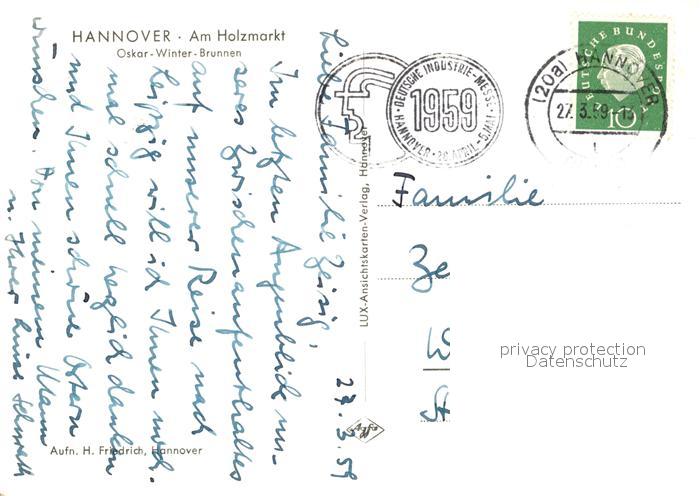 HANNOVER · Am Holzmarkt
Oskar-Winter-Brunnen
27.3.59
Liebe Familie Zeisig,
Im letzten Augenblick un-
seres Zwischenaufenthaltes
auf unserer Reise nach
Leipzig will ich Ihnen noch-
mal schnell herzlich danken
und Ihnen schöne Ostern
wünschen. Von meinem Mann
u. Ihrer Luise
Aufn. H. Friedrich, Hannover
LUX-Ansichtskarten-Verlag, Hannover
Agfa
DEUTSCHE INDUSTRIE-MESSE
1959
HANNOVER·26.APRIL-5.MAI
(20a) HANNOVER
27.3.59-13
DEUTSCHE BUNDESPOST
10
Familie
Ze
W
St
privacy protection
Datenschutz